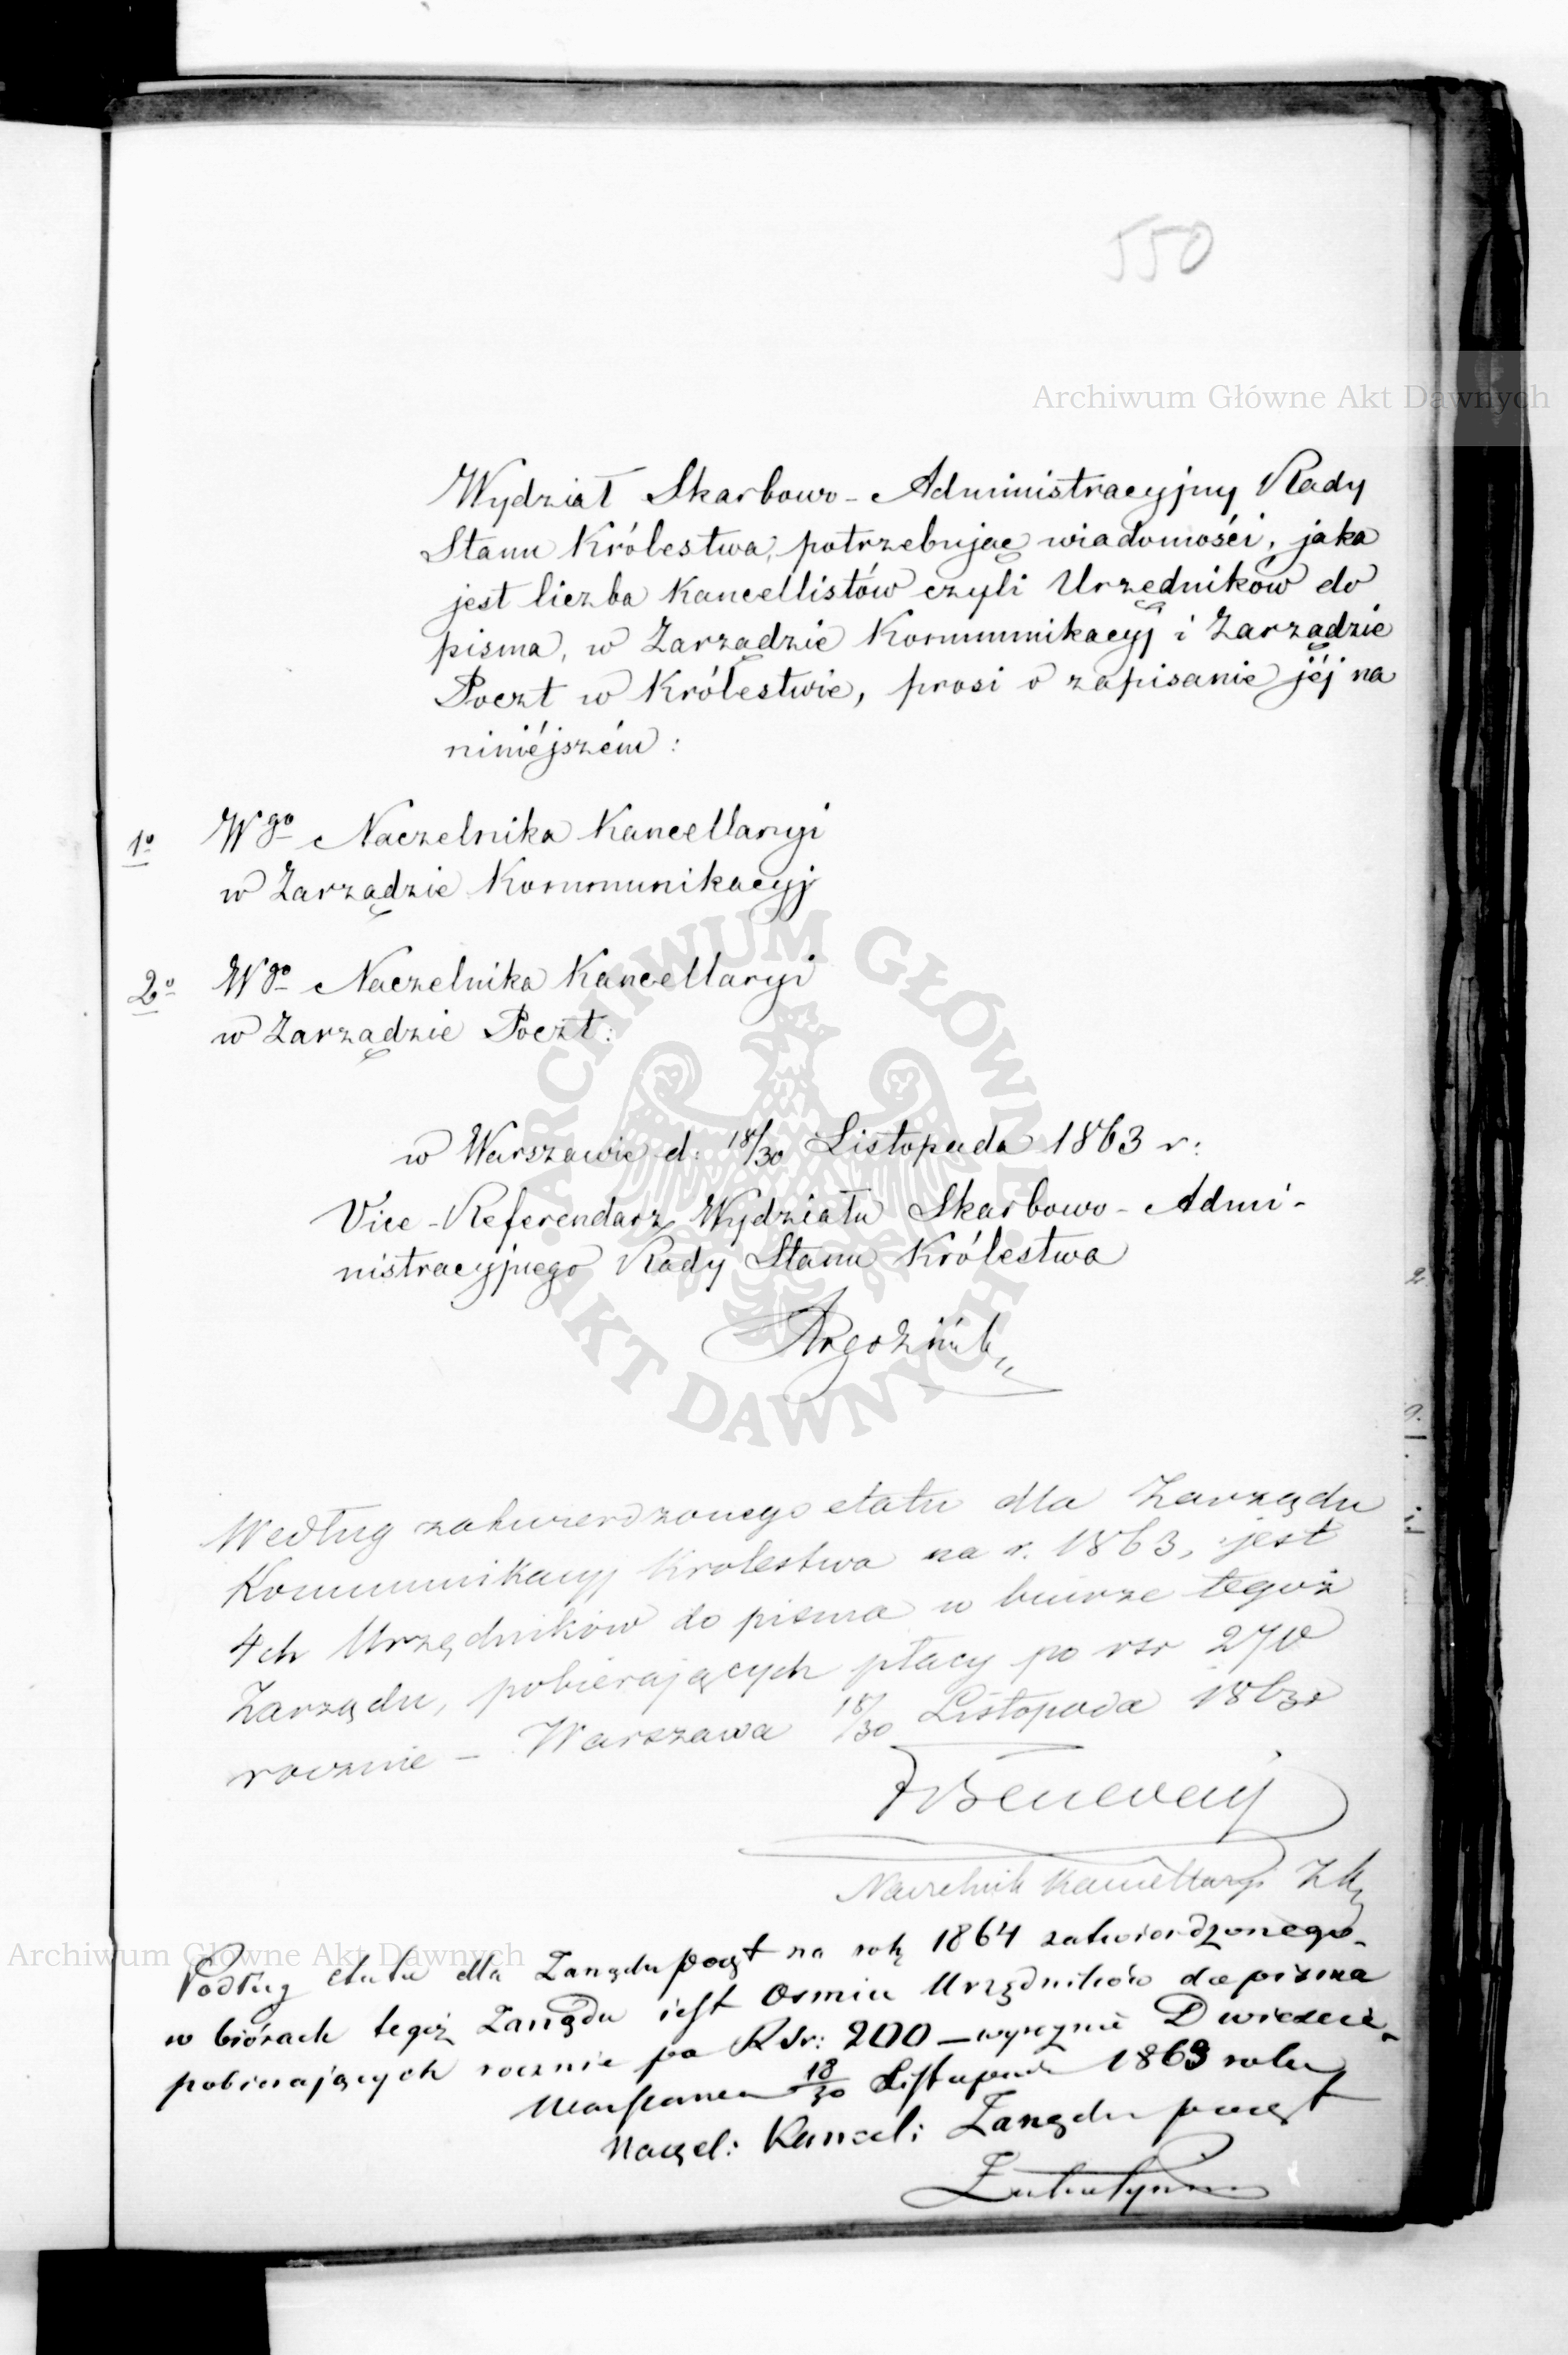 550
Archiwum Główne Akt Dawnych
Wydział Skarbowo-Administracyjny Rady
Stanu Królestwa, potrzebując wiadomości, jaka
jest liczba Kancellistów czyli Urzędników do
pisma, w Zarządzie Kommunikacyj i Zarządzie
Poczt w Królestwie, prosi o zapisanie jéj na
niniéjszém:
1o Wgo Naczelnika Kancellaryi
w Zarządzie Kommunikacyj
2o Wgo Naczelnika Kancellaryi
w Zarządzie Poczt:
ARCHIWUM GŁÓWNE AKT DAWNYCH
w Warszawie d: 18/30 Listopada 1863 r:
Vice-Referendarz Wydziału Skarbowo-Admi-
nistracyjnego Rady Stanu Królestwa
Według zatwierdzonego etatu dla Zarządu
Kommunikacyj Krolestwa na r. 1863, jest
4ch Urzędników do pisma w biurze tegoż
Zarządu, pobierających płacy po rsr 270
rocznie – Warszawa 18/30 Listopada 1863 r
Naczelnik Kancellaryi ZK
Archiwum Główne Akt Dawnych
Podług etatu dla Zarządu poczt na rok 1864 zatwierdzonego
w biórach tegoż Zarządu jest Osmiu Urzędników do pisma
pobierających rocznie po R Sr: 200 – wyraznie Dwieście
Warszawa 18/30 Listopada 1863 roku
Naczel: Kancel: Zarządu poczt